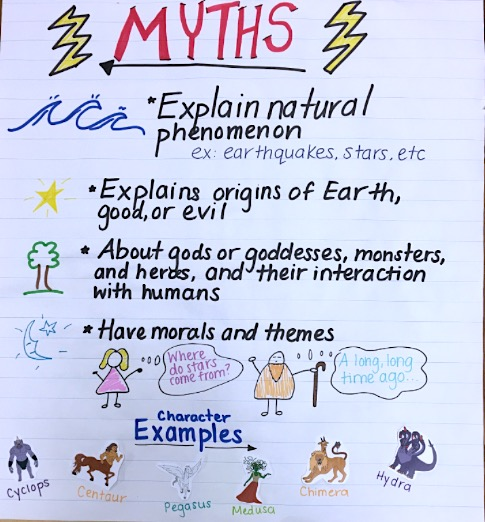 MYTHS
*Explain natural
phenomenon
ex: earthquakes, stars, etc
*Explains origins of Earth,
good, or evil
* About gods or goddesses, monsters,
and heros, and their interaction
with humans
* Have morals and themes
Where
do stars
come from?
A long, long
time ago...
Character
Examples
Cyclops
Centaur
Pegasus
Medusa
Chimera
Hydra